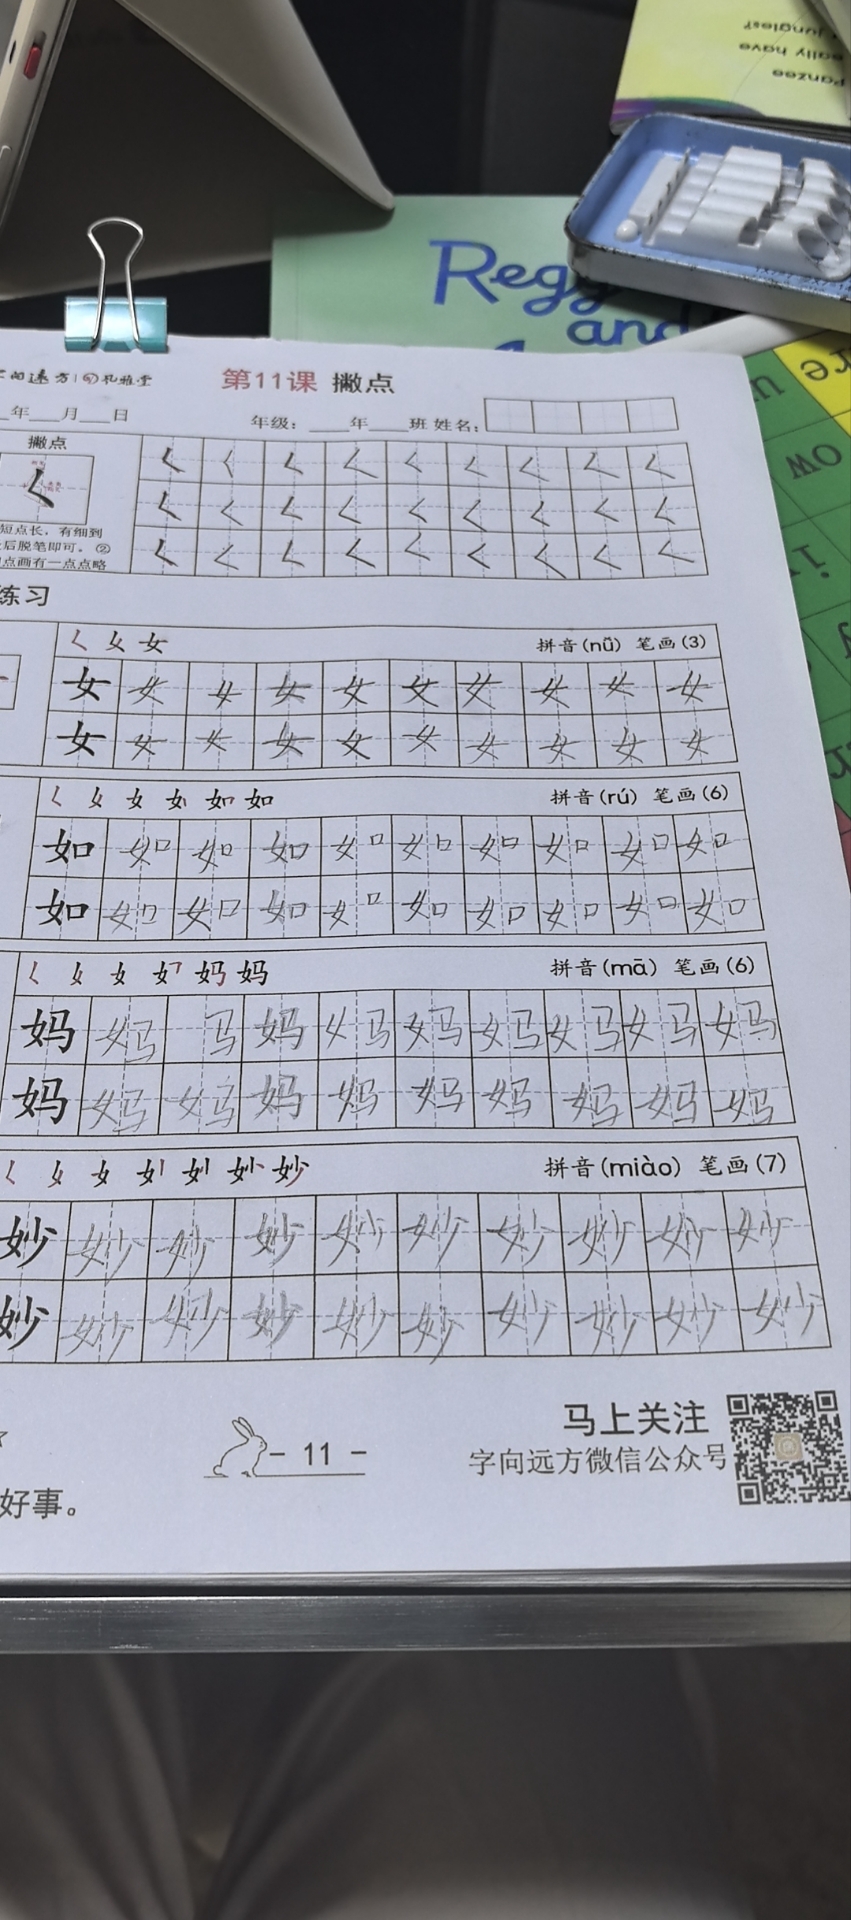 panzee
eally have
jungles?
Regg
and
第11课 撇点
年 月 日 年级: 年 班 姓名:
撇点
短点长，有细到
后脱笔即可。②
点画有一点点略
练习
女 拼音(nǚ) 笔画(3)
女 女 女 女 女 女 女 女 女 女
女 女 女 女 女 女 女 女 女 女
如 如 拼音(rú) 笔画(6)
如 如 如 如 如 如 如 如 如 如
如 如 如 如 如 如 如 如 如 如
妈 妈 拼音(mā) 笔画(6)
妈 妈 马 妈 妈 妈 妈 妈 妈 妈
妈 妈 妈 妈 妈 妈 妈 妈 妈 妈
妙 拼音(miào) 笔画(7)
妙 妙 妙 妙 妙 妙 妙 妙 妙 妙
妙 妙 妙 妙 妙 妙 妙 妙 妙 妙
- 11 -
马上关注
字向远方微信公众号
好事。